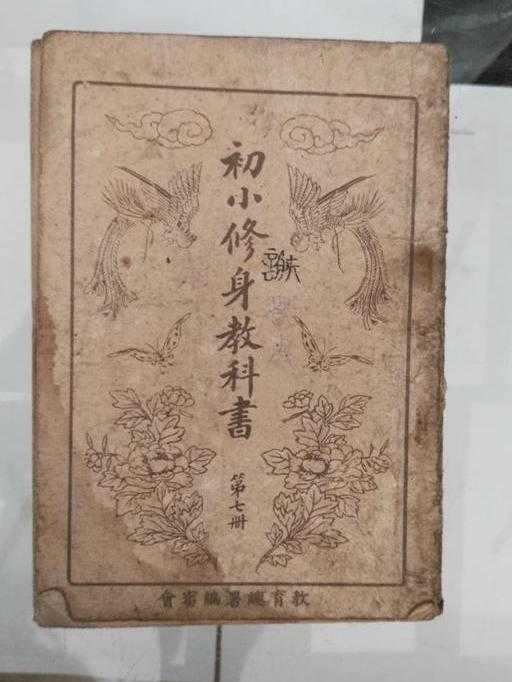 初小修身教科書
第七冊
教育總署編審會